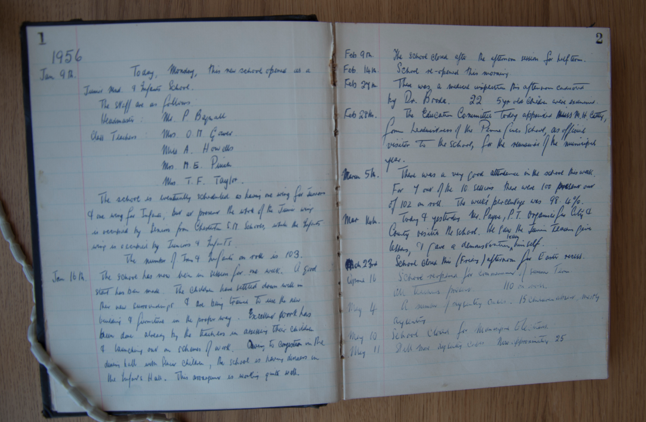 1
1956
Jan. 9th. Today, Monday, this new school opened as a
Junior Mixed & Infants School.
The staff are as follows
Headmaster: Mr. P. Bagnall
Class Teachers Mrs. O. M.
Miss A. Howells
Mrs. M. E.
Mrs. T. F. Taylor.
The school is eventually scheduled to have one wing for Juniors
& one wing for Infants, but at present the whole of the Junior wing
is occupied by Seniors from S.M. School, while the Infants
wing is occupied by Juniors & Infants.
The number of Jun. & Infants on roll is 103.
Jan. 16th. The school has now been in session for one week. A good
start has been made. The children have settled down well in
their new surroundings & are being trained to use the new
building & furniture in the proper way. Excellent work has
been done already by the teachers in assessing their children
& launching out on schemes of work. Owing to congestion in the
dining hall with Senior children, the school is having dinners in
the Infants Hall. This arrangement is working quite well.
2
Feb. 9th. The school closed after the afternoon session for half term.
Feb. 14th. School re-opened this morning.
There was a medical inspection this afternoon conducted
by Dr. Brodie. 22 5 yr old children were examined.
The Education Committee today appointed Miss M. H.
from Headmistress of the School, as official
visitor to the school, for the remainder of the municipal
year.
March 5th. There was a very good attendance in the school this week.
For 7 out of the 10 sessions there were 100 present out
of 102 on roll. The week's percentage was 98.4%.
Today & yesterday Mr. Payne, P.T. Organiser for City &
County visited the school. He saw the Junior Teachers give
lessons, & gave a demonstration himself.
School closed this (Friday) afternoon for Easter recess.
April 16 School reopened for commencement of summer Term
110 on roll
May 4
May 10 School closed for Municipal Elections
May 11 25